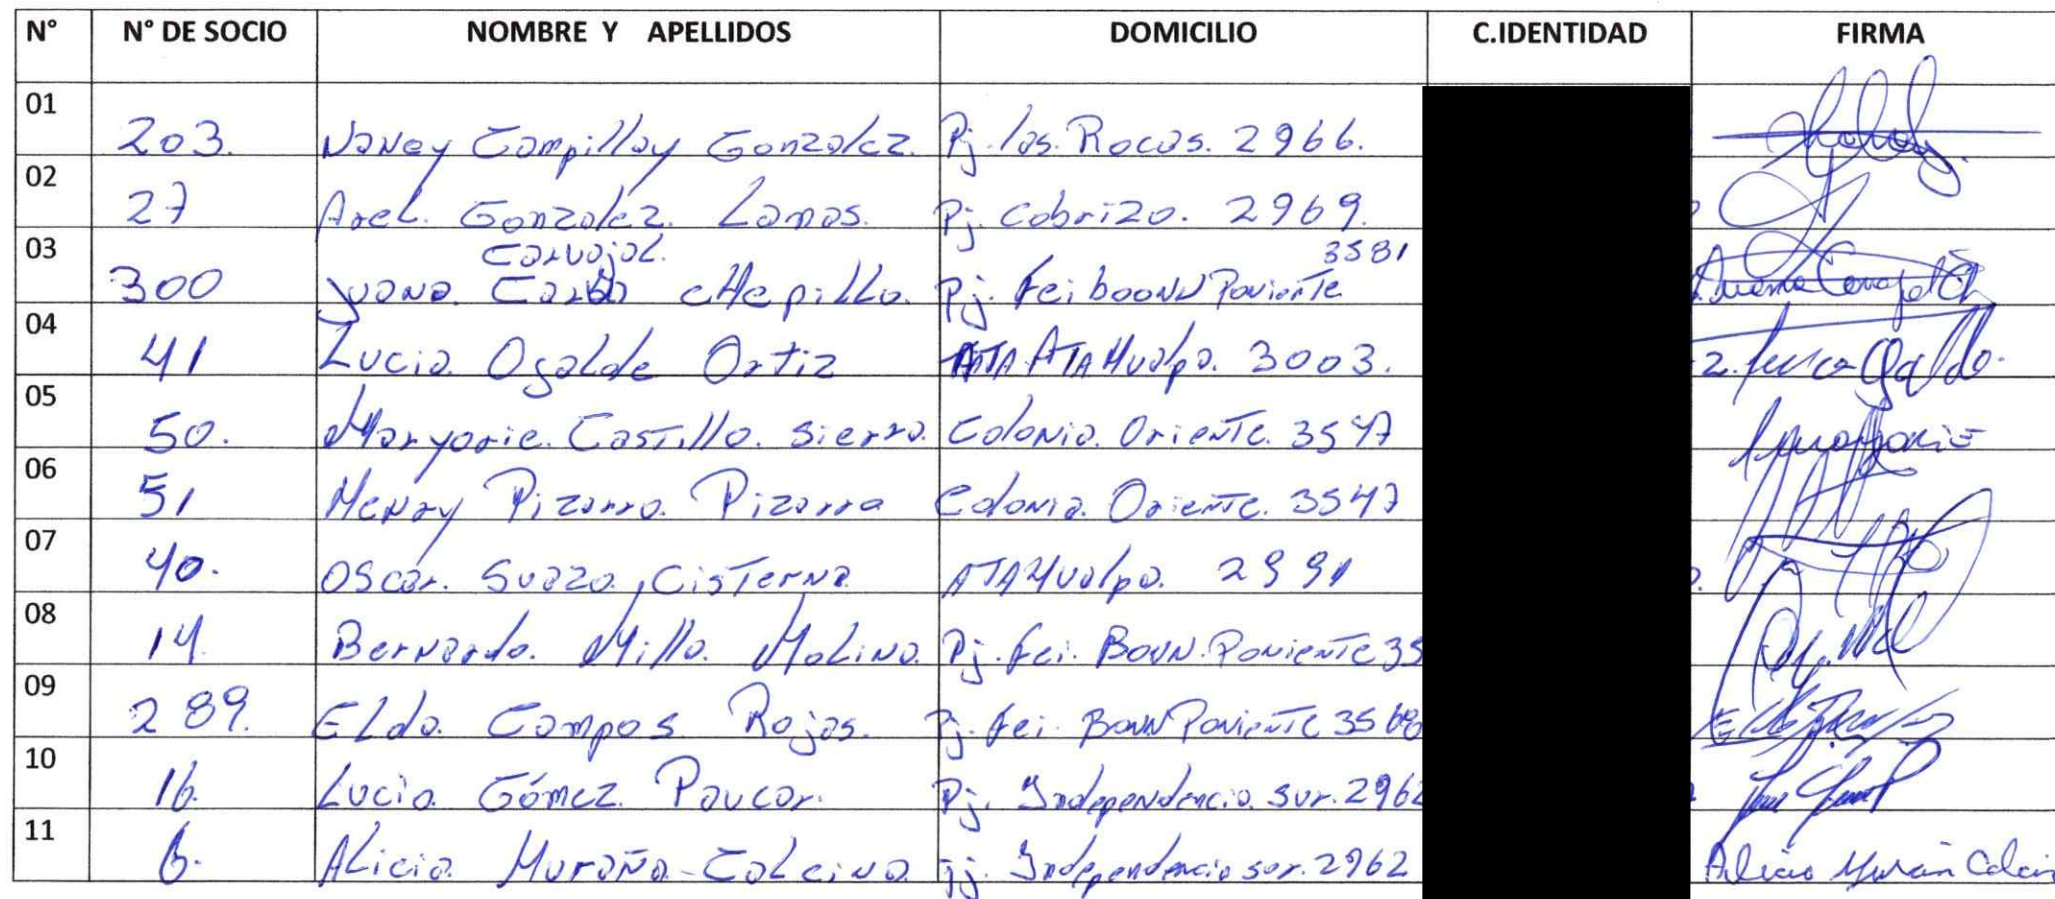 N° N° DE SOCIO NOMBRE Y APELLIDOS DOMICILIO C.IDENTIDAD FIRMA
01 203. Nancy Campillay Gonzalez. Pj. las. Rocas. 2966.
02 27 Axel. Gonzalez. Lamas. Pj. Cobrizo. 2969.
Carvajal. 3581
03 300 Juana. chepillo. Pj. fei boonN Poniente
04 41 Lucia. Ogalde Ortiz ATAHualpa. 3003.
05 50. Maryorie. Castillo. Sierra. Colonia. Oriente. 3547
06 51 Henry Pizarro. Pizarro Colonia. Oriente. 3547
07 40. Oscar. Suazo. Cisterna ATAHualpa. 2991
08 14. Bernardo. Milla. Molina. Pj. fei. BouN. Poniente 35
09 289. Elda. Campos Rojas. Pj. fei. BouN Poniente 3568
10 16. Lucia Gómez. Paucar. Pj. Independencia. sur. 2962
11 6. Alicia Muraña-Calcina Pj. Independencia sur. 2962 Alicia Muran Calcin